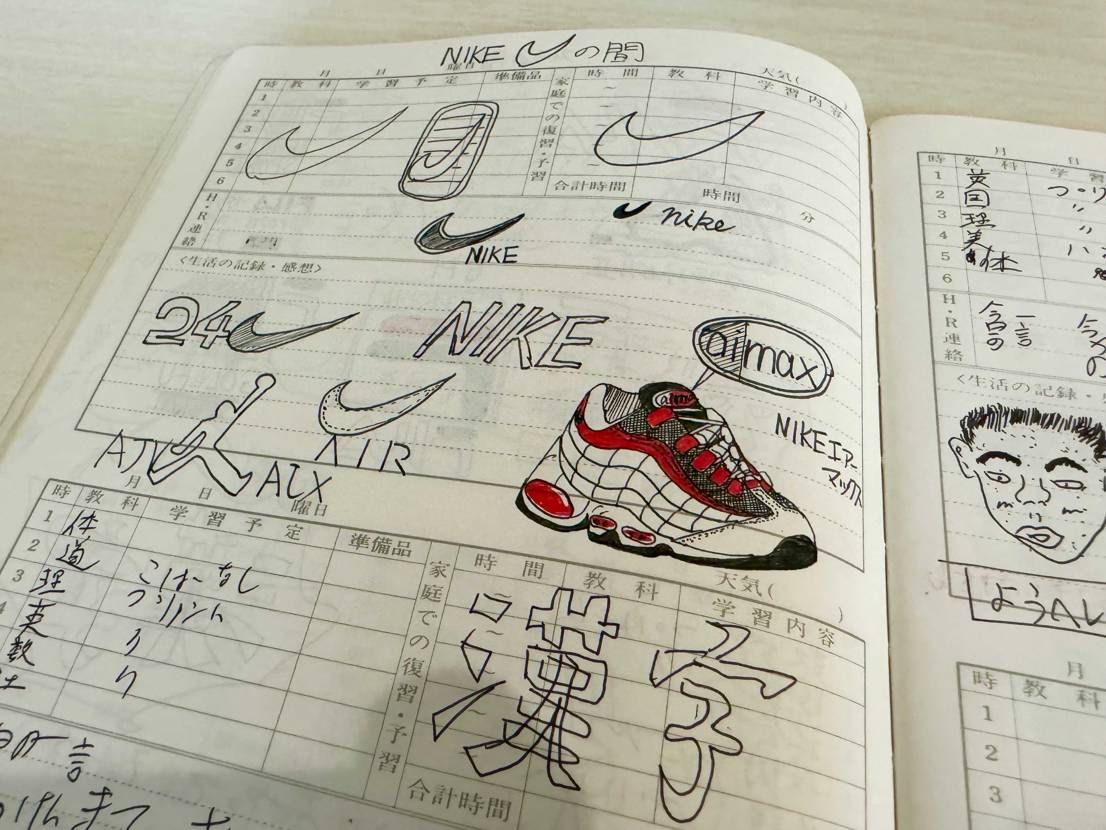 NIKE の間
月 日 曜日 天気(
時 教科 学習予定 準備品 家庭での復習・予習 時間 教科 学習内容
1
2
3
4
5
6
~
~
~
合計時間 時間 分
H・R連絡
nike
NIKE
<生活の記録・感想>
24
NIKE
airmax
AIR
NIKEエアーマックス
月 日 曜日 天気( )
時 教科 学習予定 準備品 家庭での復習・予習 時間 教科 学習内容
1 体
2 道
3 理 プリント
4 英 〃
数 〃
漢字
合計時間
月 日
時 教科 学習
1 英
2 国 〃
3 理 〃
4 美
5 体
6
H・R連絡
今日の一言
<生活の記録・
月
時 教科
1
2
3